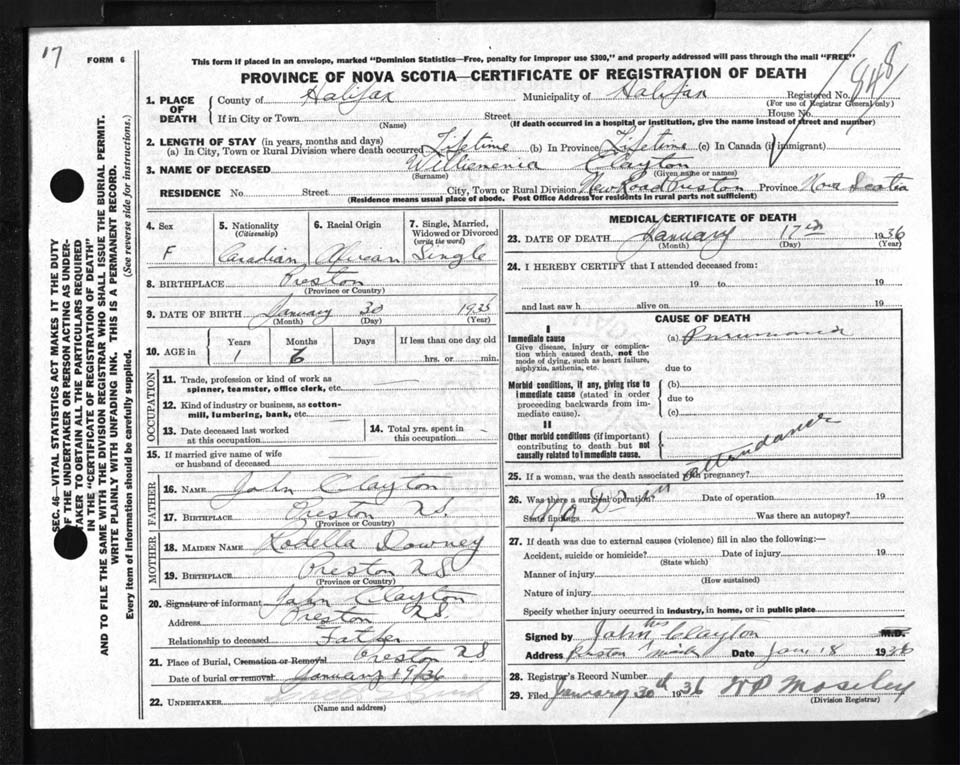 17
FORM 6
This form if placed in an envelope, marked "Dominion Statistics—Free, penalty for improper use $300," and properly addressed will pass through the mail "FREE"
PROVINCE OF NOVA SCOTIA—CERTIFICATE OF REGISTRATION OF DEATH
848
SEC. 46—VITAL STATISTICS ACT MAKES IT THE DUTY
OF THE UNDERTAKER OR PERSON ACTING AS UNDER-
TAKER TO OBTAIN ALL THE PARTICULARS REQUIRED
IN THE "CERTIFICATE OF REGISTRATION OF DEATH"
AND TO FILE THE SAME WITH THE DIVISION REGISTRAR WHO SHALL ISSUE THE BURIAL PERMIT.
WRITE PLAINLY WITH UNFADING INK. THIS IS A PERMANENT RECORD.
Every item of information should be carefully supplied. (See reverse side for instructions.)
1. PLACE OF DEATH County of Halifax Municipality of Halifax Registered No.
(For use of Registrar General only)
If in City or Town Street House No.
(Name) (If death occurred in a hospital or institution, give the name instead of street and number)
2. LENGTH OF STAY (in years, months and days)
(a) In City, Town or Rural Division where death occurred Lifetime (b) In Province Lifetime (c) In Canada (if immigrant)
3. NAME OF DECEASED Willienenia Clayton
(Surname) (Given name or names)
RESIDENCE No. Street City, Town or Rural Division New Road Preston Province Nova Scotia
(Residence means usual place of abode. Post Office Address for residents in rural parts not sufficient)
4. Sex 5. Nationality 6. Racial Origin 7. Single, Married,
(Citizenship) Widowed or Divorced
(write the word)
F Canadian African Single
8. BIRTHPLACE Preston
(Province or Country)
9. DATE OF BIRTH January 30 1935
(Month) (Day) (Year)
10. AGE in Years Months Days If less than one day
1 6 hrs. or min.
OCCUPATION
11. Trade, profession or kind of work as
spinner, teamster, office clerk, etc.
12. Kind of industry or business, as cotton-
mill, lumbering, bank, etc.
13. Date deceased last worked 14. Total yrs. spent in
at this occupation this occupation
15. If married give name of wife
or husband of deceased
FATHER
16. NAME John Clayton
17. BIRTHPLACE Preston N.S.
(Province or Country)
MOTHER
18. MAIDEN NAME Rosella Downey
19. BIRTHPLACE Preston N S
(Province or Country)
20. Signature of informant John Clayton
Address Preston N.S.
Relationship to deceased Father
21. Place of Burial, Cremation or Removal Preston N S
Date of burial or removal January 19/36
22. UNDERTAKER
(Name and address)
MEDICAL CERTIFICATE OF DEATH
23. DATE OF DEATH January 17th 1936
(Month) (Day) (Year)
24. I HEREBY CERTIFY that I attended deceased from:
19 to 19
and last saw h alive on 19
CAUSE OF DEATH
I
Immediate cause (a) Pneumonia
Give disease, injury or complica-
tion which caused death, not the
mode of dying, such as heart failure,
asphyxia, asthenia, etc. due to
Morbid conditions, if any, giving rise to (b)
immediate cause (stated in order due to
proceeding backwards from im-
mediate cause). (c)
II
Other morbid conditions (if important)
contributing to death but not
causally related to immediate cause.
25. If a woman, was the death associated with pregnancy?
No Dr in attendance
26. Was there a surgical operation? Date of operation 19
State findings Was there an autopsy?
27. If death was due to external causes (violence) fill in also the following:—
Accident, suicide or homicide? Date of injury 19
(State which)
Manner of injury
(How sustained)
Nature of injury
Specify whether injury occurred in industry, in home, or in public place
Signed by John his Clayton M.D.
Address Preston mark Date Jan 18 1936
28. Registrar's Record Number
29. Filed January 30th 1936 Moseley
(Division Registrar)